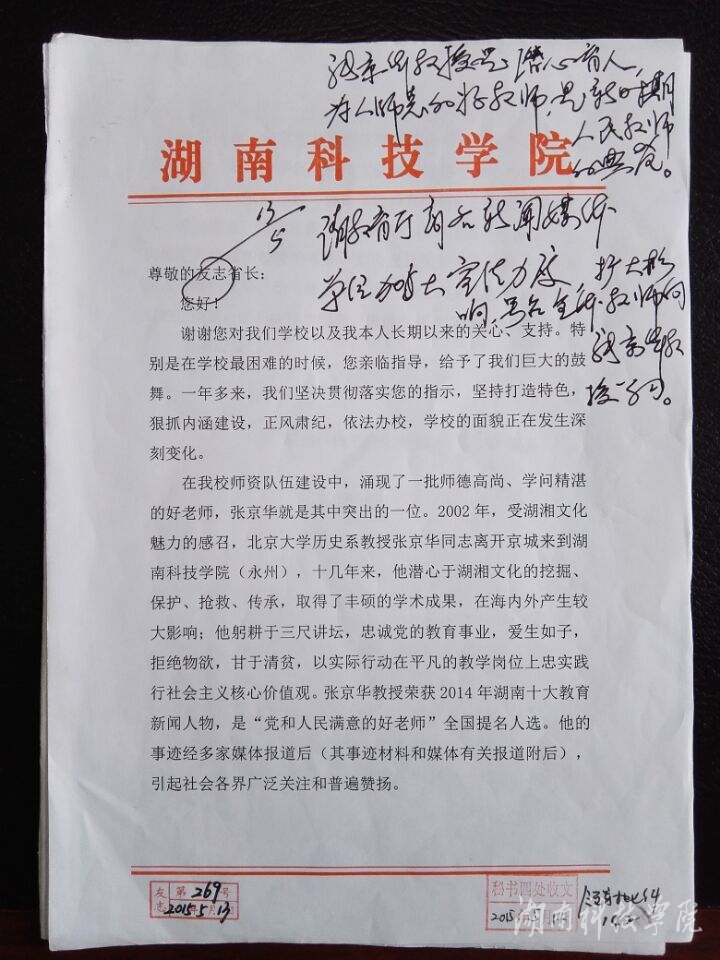 张京华教授是潜心育人,
为人师表的好教师,是新时期
人民教师
的典范。
湖南科技学院
13/5
请教育厅商各新闻媒体
单位加大宣传力度,扩大影
响,号召全体教师向
张京华教
授学习。
尊敬的友志省长：
您好！
谢谢您对我们学校以及我本人长期以来的关心、支持。特
别是在学校最困难的时候，您亲临指导，给予了我们巨大的鼓
舞。一年多来，我们坚决贯彻落实您的指示，坚持打造特色，
狠抓内涵建设，正风肃纪，依法办校，学校的面貌正在发生深
刻变化。
在我校师资队伍建设中，涌现了一批师德高尚、学问精湛
的好老师，张京华就是其中突出的一位。2002 年，受湖湘文化
魅力的感召，北京大学历史系教授张京华同志离开京城来到湖
南科技学院（永州），十几年来，他潜心于湖湘文化的挖掘、
保护、抢救、传承，取得了丰硕的学术成果，在海内外产生较
大影响；他躬耕于三尺讲坛，忠诚党的教育事业，爱生如子，
拒绝物欲，甘于清贫，以实际行动在平凡的教学岗位上忠实践
行社会主义核心价值观。张京华教授荣获 2014 年湖南十大教育
新闻人物，是“党和人民满意的好老师”全国提名人选。他的
事迹经多家媒体报道后（其事迹材料和媒体有关报道附后），
引起社会各界广泛关注和普遍赞扬。
友志 第269号
2015年5月13日
秘书四处收文
2015年5月
湖南科技学院